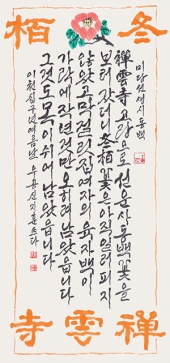 冬栢
미당 선생 시 동백
禪雲寺 고랑으로 선운사 동백꽃을
보러 갔더니 冬栢꽃은 아직 일러 피지
않았고 막걸리집 여자의 육자백이
가락에 작년것만 오히려 남았읍니다
그것도 목이 쉬어 남았읍니다
이천십구년 여름날 쓰다
禪雲寺